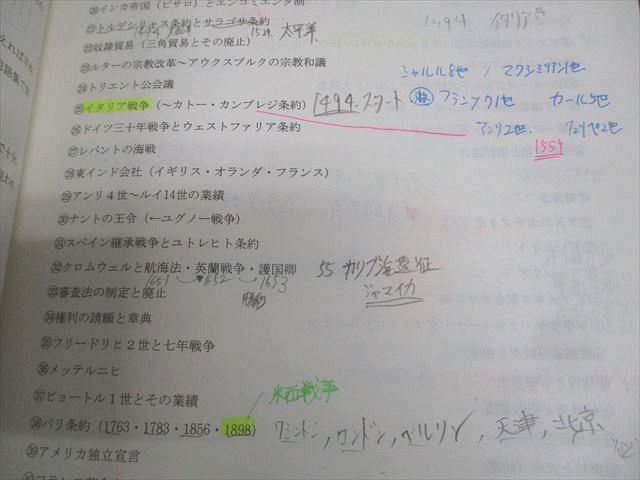 ⑳インカ帝国(ピサロ)とエンコミエンダ制
1494 イタリア
㉑トルデシリャス条約とサラゴサ条約
1529 太平洋
㉒奴隷貿易(三角貿易とその廃止)
㉓ルターの宗教改革〜アウクスブルクの宗教和議
シャルル8世 / マクシミリアン1世
㉔トリエント公会議
㉕イタリア戦争(〜カトー・カンブレジ条約) 1494.スタート
フランソワ1世 カール5世
㉖ドイツ三十年戦争とウェストファリア条約
アンリ2世. フェリペ2世
1559
㉗レパントの海戦
㉘東インド会社(イギリス・オランダ・フランス)
㉙アンリ4世〜ルイ14世の業績
㉚ナントの王令(←ユグノー戦争)
㉛スペイン継承戦争とユトレヒト条約
㉜クロムウェルと航海法・英蘭戦争・護国卿
1651 1652 1653
55 カリブ海遠征
ジャマイカ
㉝審査法の制定と廃止
㉞権利の請願と章典
㉟フリードリヒ2世と七年戦争
㊱メッテルニヒ
㊲ピョートル1世とその業績
米西戦争
㊳パリ条約(1763・1783・1856・1898)
ワシントン, ロンドン, ベルリン, 天津, 北京
㊴アメリカ独立宣言